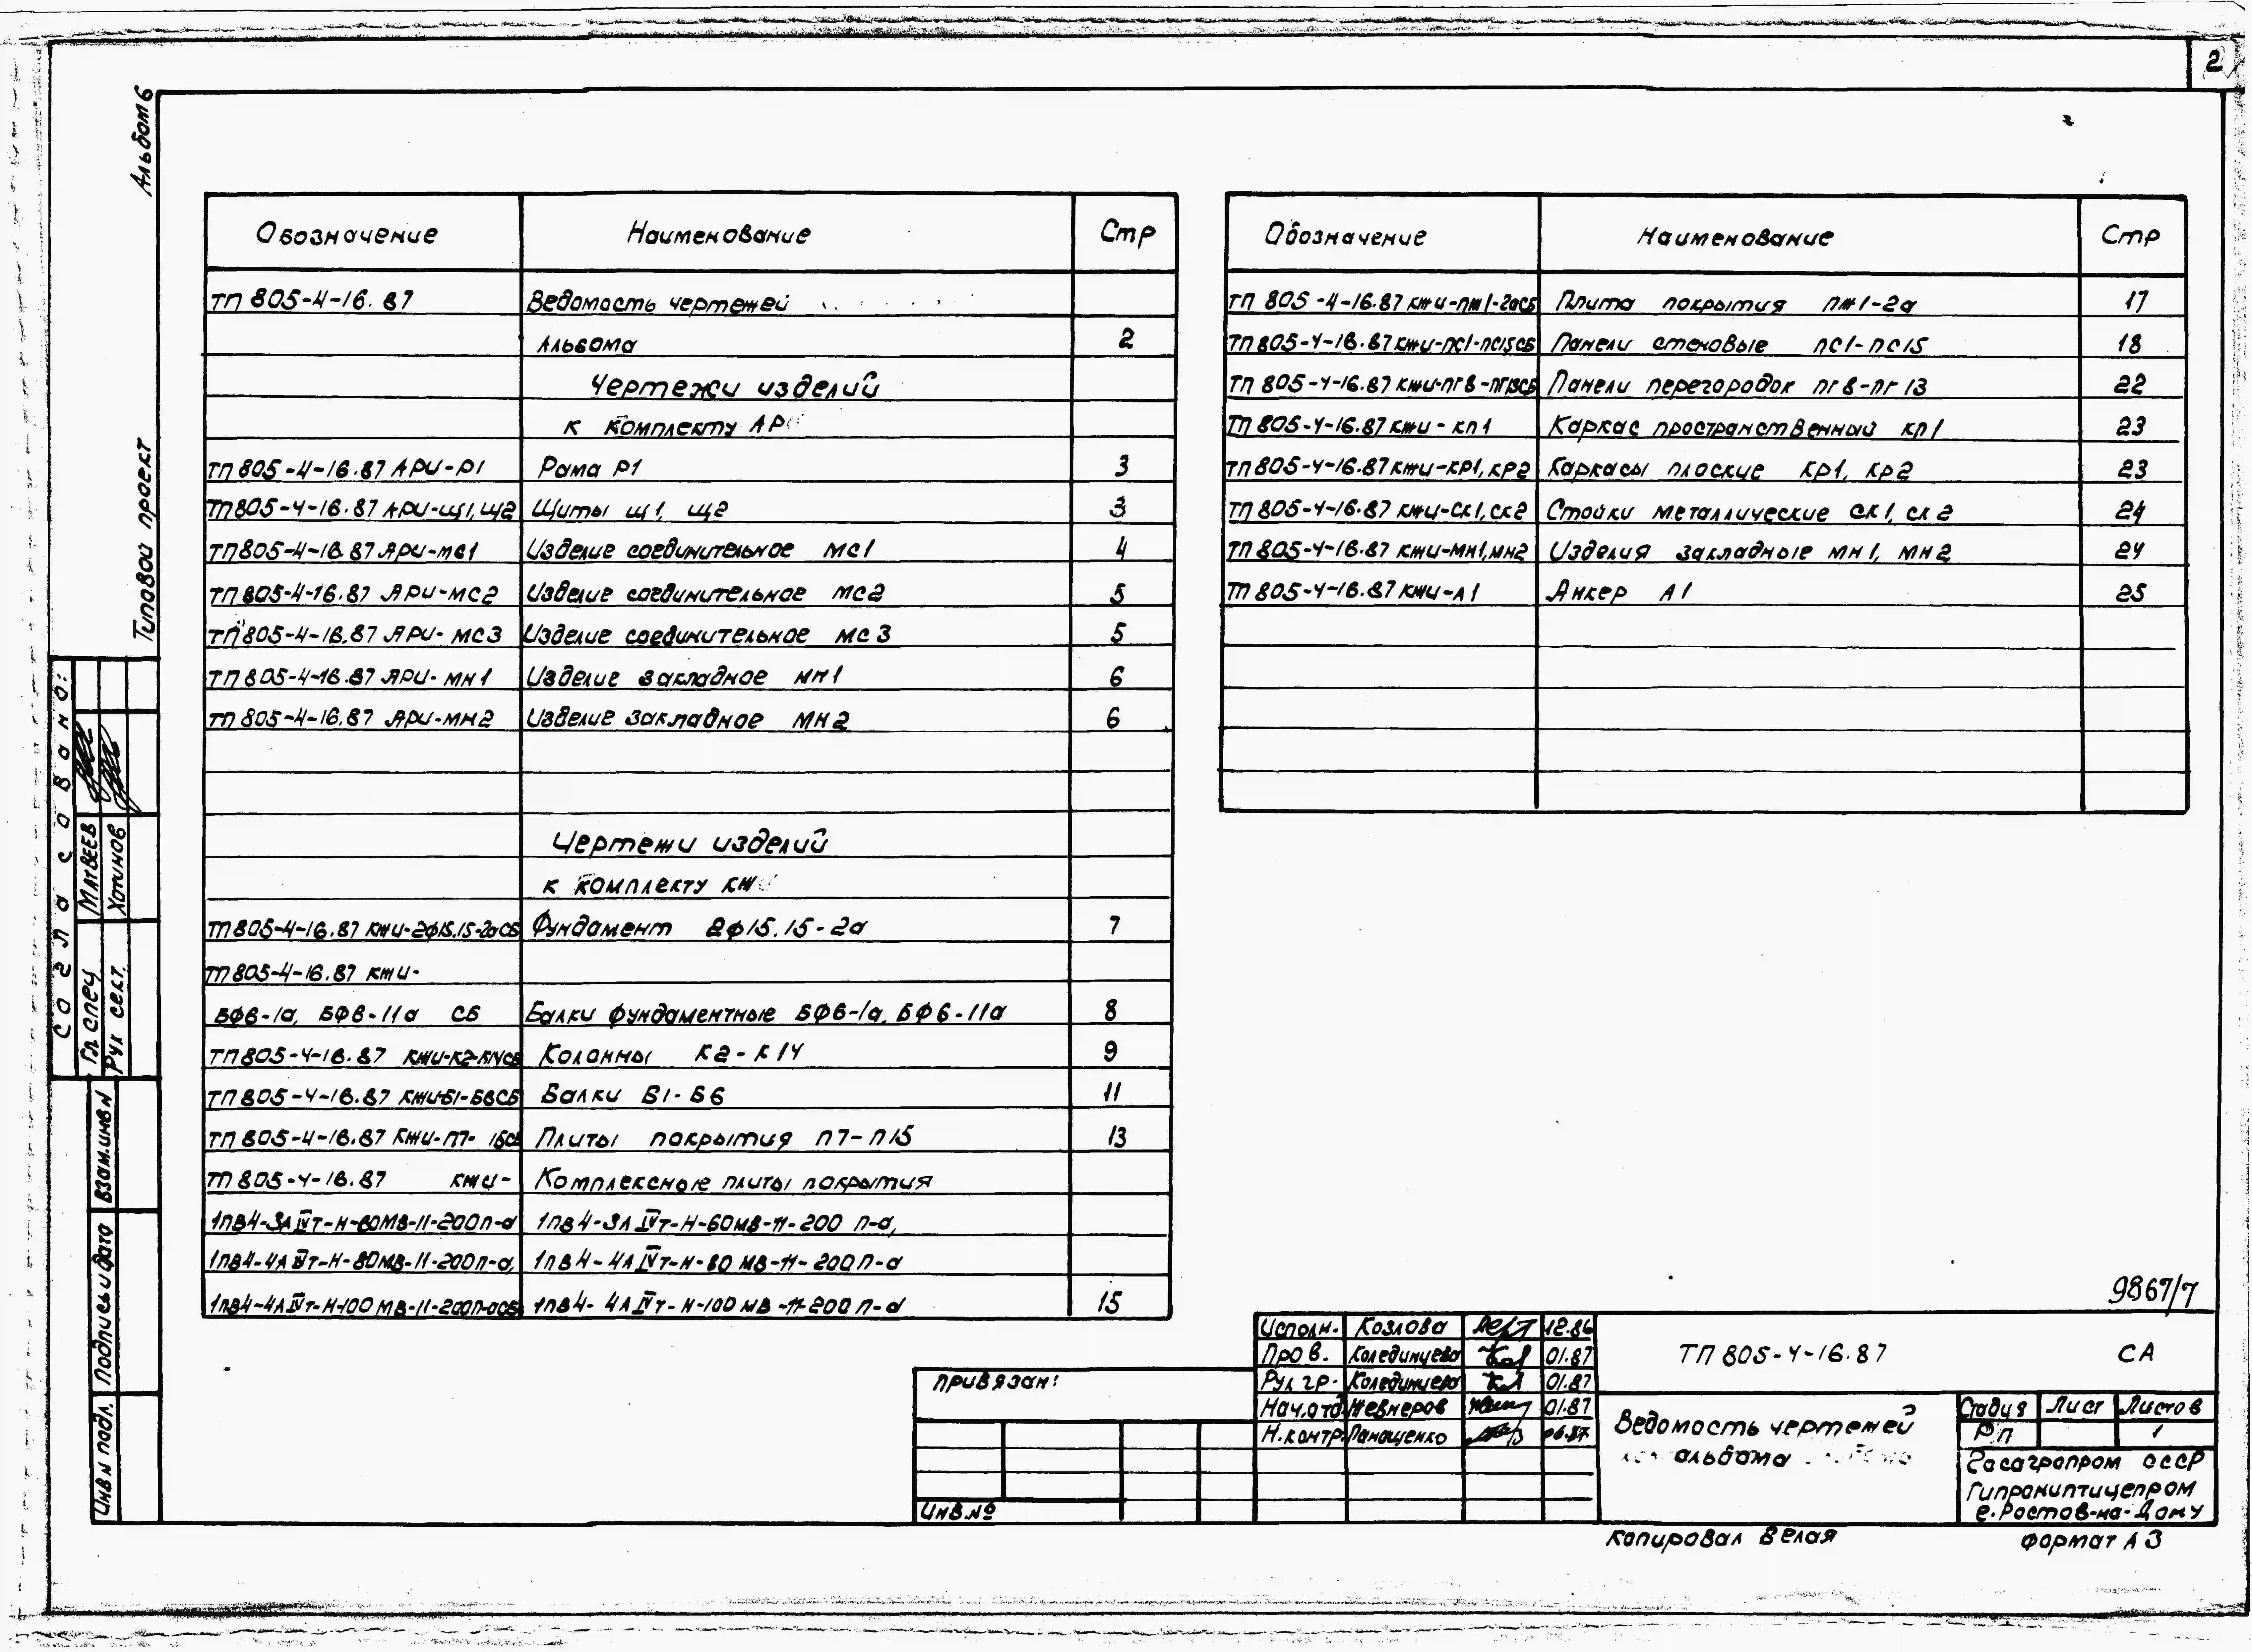 2
Альбом 6
Типовой проект
Обозначение Наименование Стр
ТП 805-4-16.87 Ведомость чертежей
Альбома 2
Чертежи изделий
к комплекту АР
ТП 805-4-16.87 АРИ-Р1 Рама Р1 3
ТП 805-4-16.87 АРИ-Щ1, Щ2 Щиты Щ1, Щ2 3
ТП 805-4-16.87 АРИ-МС1 Изделие соединительное МС1 4
ТП 805-4-16.87 АРИ-МС2 Изделие соединительное МС2 5
ТП 805-4-16.87 АРИ-МС3 Изделие соединительное МС3 5
ТП 805-4-16.87 АРИ-МН1 Изделие закладное МН1 6
ТП 805-4-16.87 АРИ-МН2 Изделие закладное МН2 6
Чертежи изделий
к комплекту КЖ
ТП 805-4-16.87 КЖИ-2Ф15.15-2аСБ Фундамент 2Ф15.15-2а 7
ТП 805-4-16.87 КЖИ-
БФ6-1а, БФ6-11а СБ Балки фундаментные БФ6-1а, БФ6-11а 8
ТП 805-4-16.87 КЖИ-К2-К14СБ Колонны К2-К14 9
ТП 805-4-16.87 КЖИ-Б1-Б6СБ Балки Б1-Б6 11
ТП 805-4-16.87 КЖИ-П7- 15СБ Плиты покрытия П7-П15 13
ТП 805-4-16.87 КЖИ- Комплексные плиты покрытия
1ПВ4-3АIVт-Н-60МВ-11-200П-а 1ПВ4-3АIVт-Н-60МВ-11-200 П-а,
1ПВ4-4АIVт-Н-80МВ-11-200П-а, 1ПВ4-4АIVт-Н-80 МВ-11-200П-а
1ПВ4-4АIVт-Н-100МВ-11-200П-аСБ 1ПВ4-4АIVт-Н-100 МВ-11-200 П-а 15
Обозначение Наименование Стр
ТП 805-4-16.87 КЖИ-ПЖ1-2аСБ Плита покрытия ПЖ1-2а 17
ТП 805-4-16.87 КЖИ-ПС1-ПС15СБ Панели стеновые ПС1-ПС15 18
ТП 805-4-16.87 КЖИ-ПГ8-ПГ13СБ Панели перегородок ПГ8-ПГ13 22
ТП 805-4-16.87 КЖИ-КП1 Каркас пространственный КП1 23
ТП 805-4-16.87 КЖИ-КР1, КР2 Каркасы плоские КР1, КР2 23
ТП 805-4-16.87 КЖИ-СК1, СК2 Стойки металлические СК1, СК2 24
ТП 805-4-16.87 КЖИ-МН1, МН2 Изделия закладные МН1, МН2 24
ТП 805-4-16.87 КЖИ-А1 Анкер А1 25
Согласовано:
Гл спец Матвеев
Рук сект. Хотимов
Взам.инв N
Подпись и дата
Инв N подл.
9867/7
Привязан:
Инв.№
Исполн. Козлова 12.86
Пров. Колединцева 01.87
Рук гр. Колединцева 01.87
Нач.отд Жевнеров 01.87
Н.контр. Панащенко 06.87
ТП 805-4-16.87 СА
Ведомость чертежей
альбома
Стадия Лист Листов
РП 1
Госагропром СССР
Гипрониптицепром
г.Ростов-на-Дону
Копировал Белая Формат А3